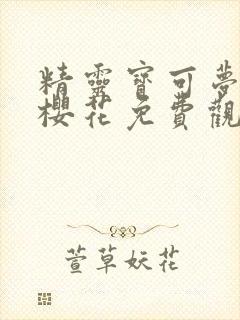 精靈寶可夢
櫻花免費觀
萱草妖花